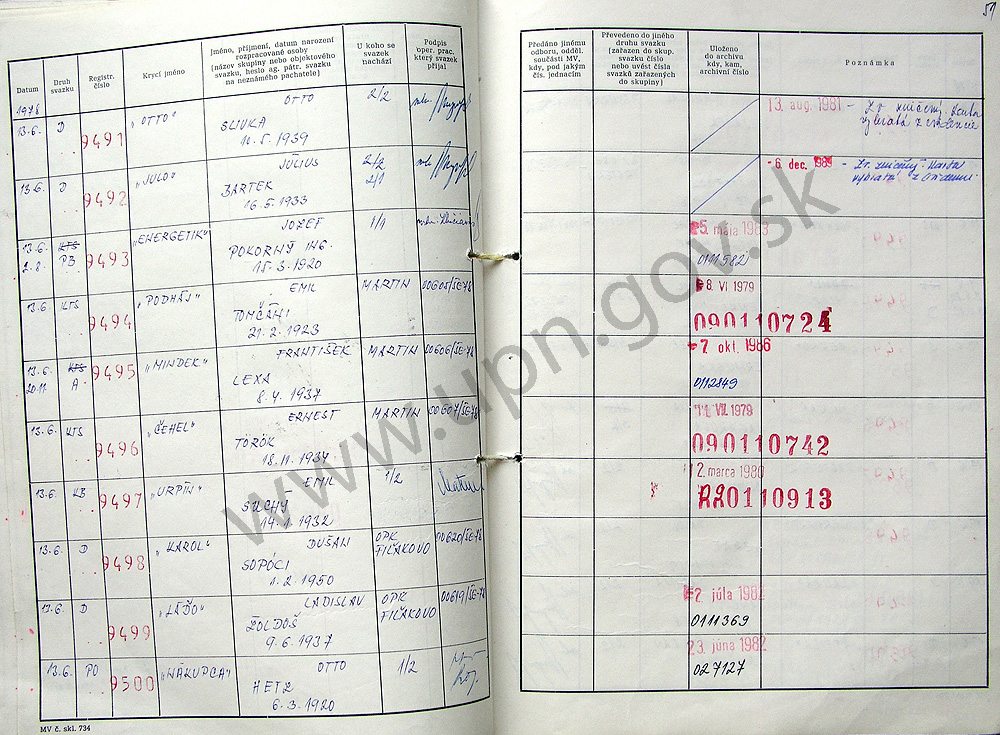 51
Datum
Druh svazku
Registr. číslo
Krycí jméno
Jméno, příjmení, datum narození rozpracované osoby (název skupiny nebo objektového svazku, heslo ag. pátr. svazku na neznámého pachatele)
U koho se svazek nachází
Podpis oper. prac. který svazek přijal
Předáno jinému odboru, odděl. součásti MV, kdy, pod jakým čís. jednacím
Převedeno do jiného druhu svazku (zařazen do skup. svazku číslo nebo uvést čísla svazků zařazených do skupiny)
Uloženo do archivu kdy, kam, archivní číslo
Poznámka
1978
13.6. D 9491 "OTTO" OTTO 2/2
SLIVKA
10.5.1939
13. aug. 1981 -
13.6. D 9492 "JULO" JÚLIUS 2/2
BARTEK 2/1
16.5.1933
6. dec. 1989 -
13.6. KTS 9493 "ENERGETIK" JOZEF 1/1
2.8. PB POKORNÝ ING.
15.3.1920
5. mája 1983
0111582
13.6. KTS 9494 "PODHÁJ" EMIL MARTIN 00605/ŠE-78
TOMČÁNI
21.2.1923
8. VI 1979
090110724
13.6. KTS 9495 "MINDEK" FRANTIŠEK MARTIN 00606/ŠE-78
20.11 A LEXA
8.4.1937
7. okt. 1986
0112849
13.6. KTS 9496 "ČEHEL" ERNEST MARTIN 00607/ŠE-78
TÖRÖK
18.11.1937
11. VII. 1979
090110742
13.6. KB 9497 "URPÍN" EMIL 1/2
SUCHÝ
14.1.1932
12. marca 1980
0110913
13.6. D 9498 "KAROL" DUŠAN OPK FIĽAKOVO 00620/ŠE-78
SOPÓCI
1.2.1950
13.6. D 9499 "LAĎO" LADISLAV OPK FIĽAKOVO 00619/ŠE-78
ŽOLDOŠ
9.6.1937
2. júla 1982
0111369
13.6. PO 9500 "NÁKUPCA" OTTO 1/2
HETZ
6.3.1920
23. júna 1982
027127
MV č. skl. 734
www.upn.gov.sk